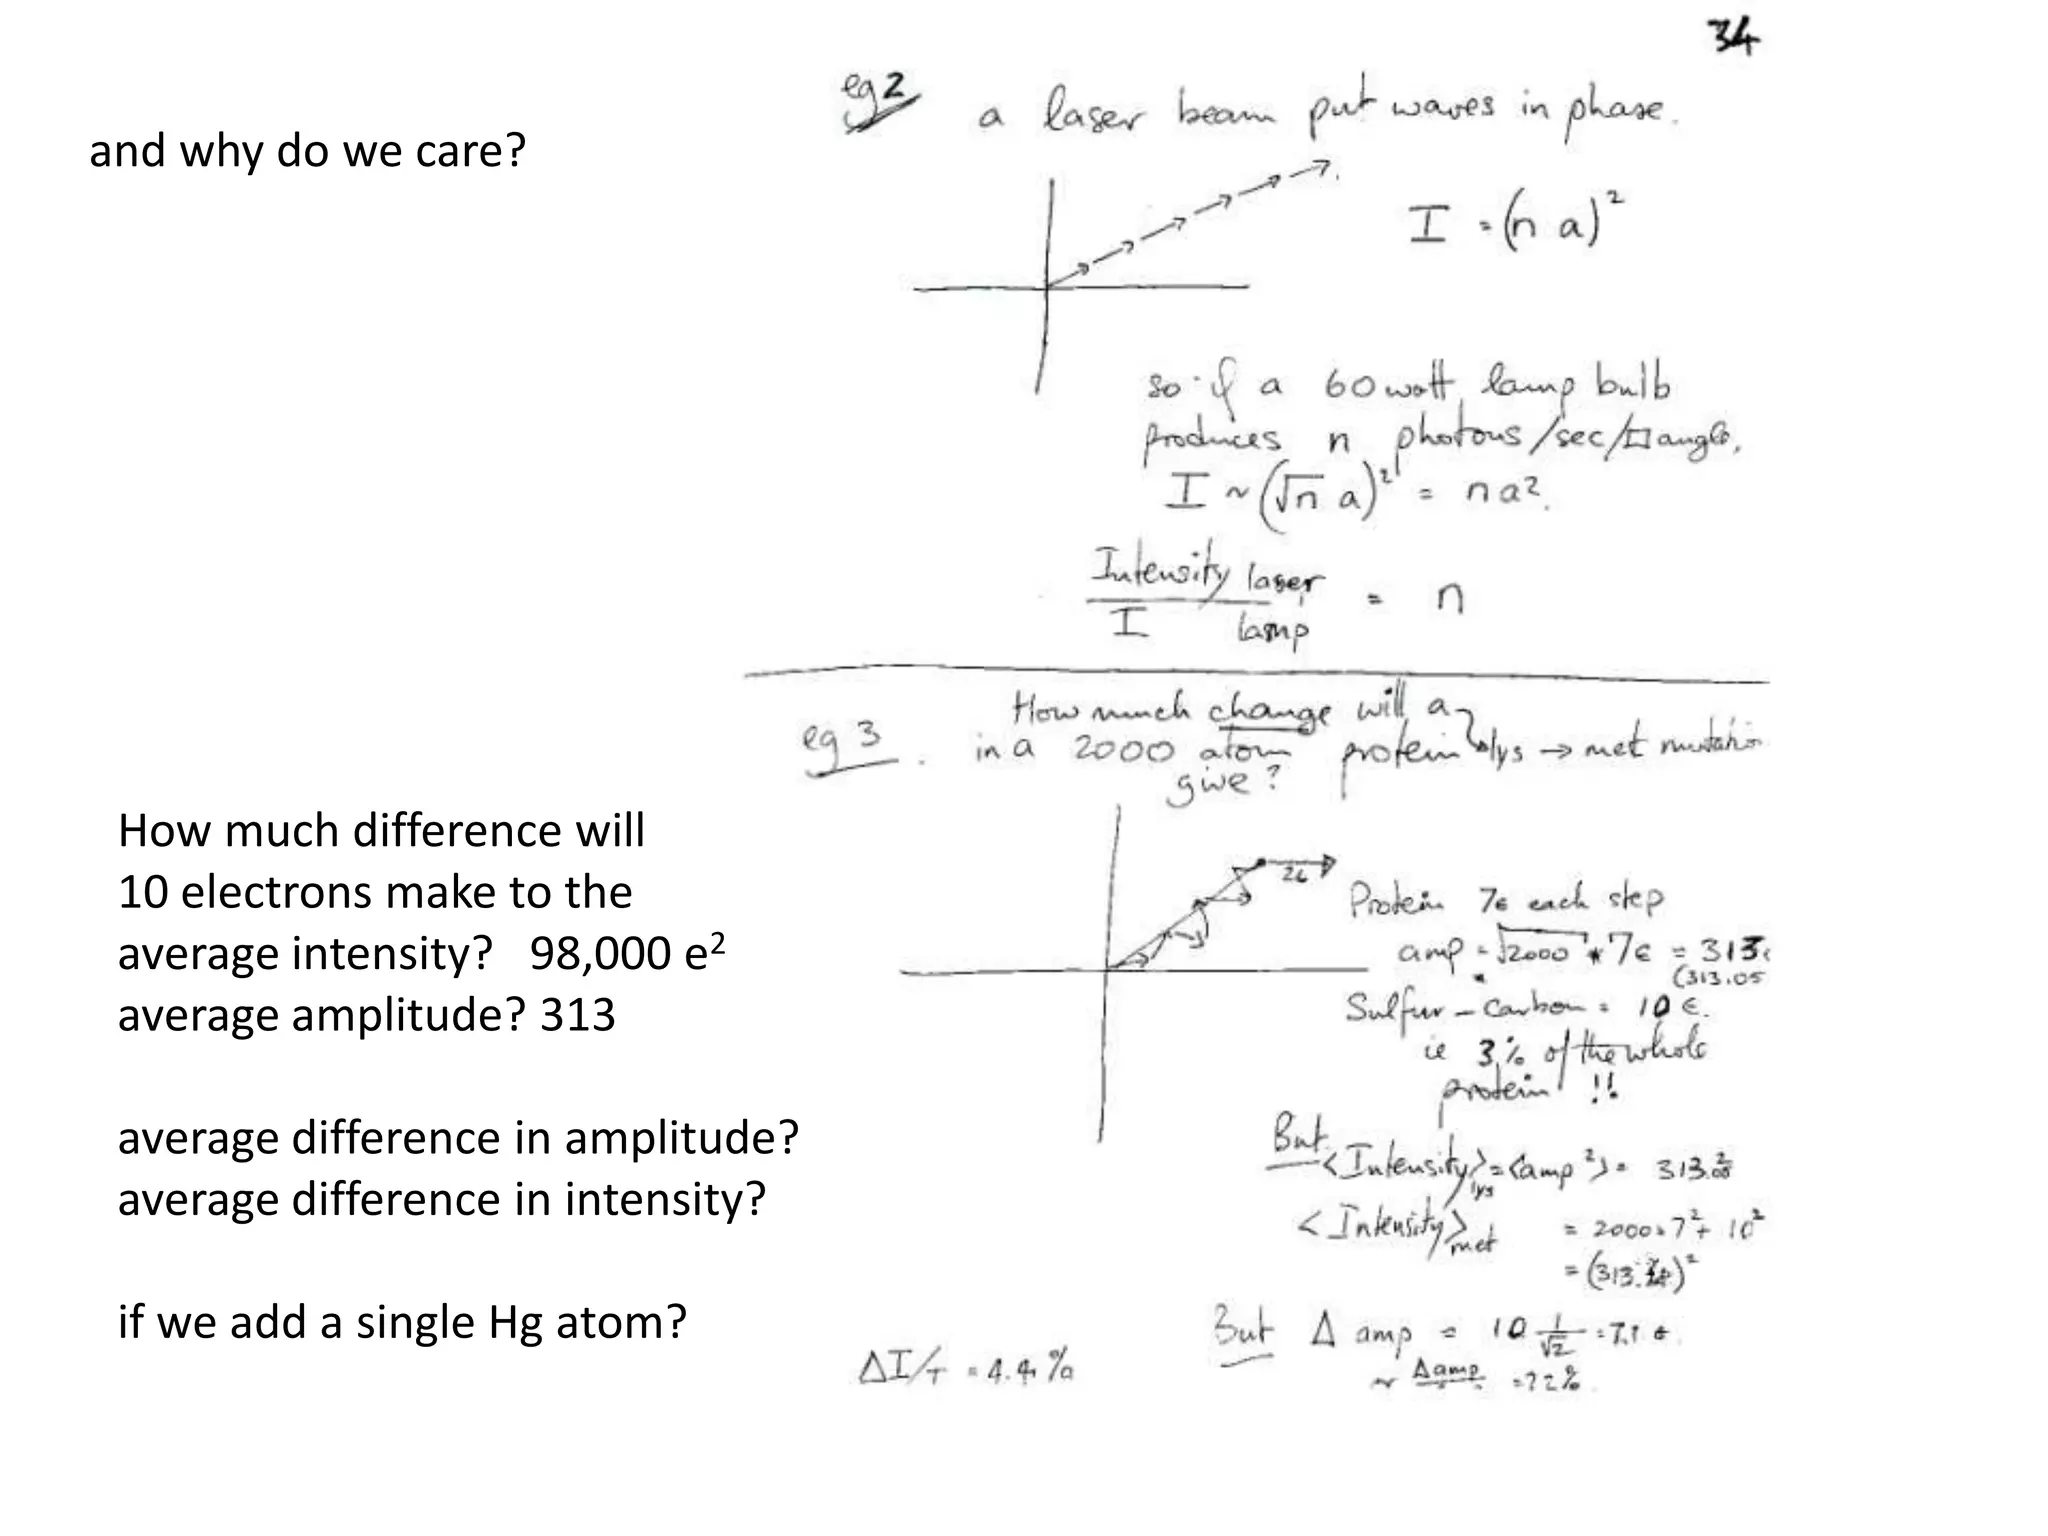 34
and why do we care?
eg 2 a laser beam put waves in phase.
I = (n a)²
so if a 60 watt lamp bulb
produces n photons/sec/□ angle.
I ~ (√n a)² = na².
Intensity laser
I lamp
= n
eg 3. How much change will a
in a 2000 atom protein lys → met mutation
give?
26
Protein 7e each step
amp = √2000 * 7e = 313
(313.05
Sulfur - Carbon = 10 e.
ie 3% of the whole
protein !!
But
<Intensity>lys = <amp²> = 313
<Intensity>met = 2000 . 7² + 10²
= (313. )²
But Δ amp = 10 1/√2 = 7.1 e.
~ Δamp = 2.2%
ΔI/I = 4.4%
How much difference will
10 electrons make to the
average intensity? 98,000 e²
average amplitude? 313
average difference in amplitude?
average difference in intensity?
if we add a single Hg atom?